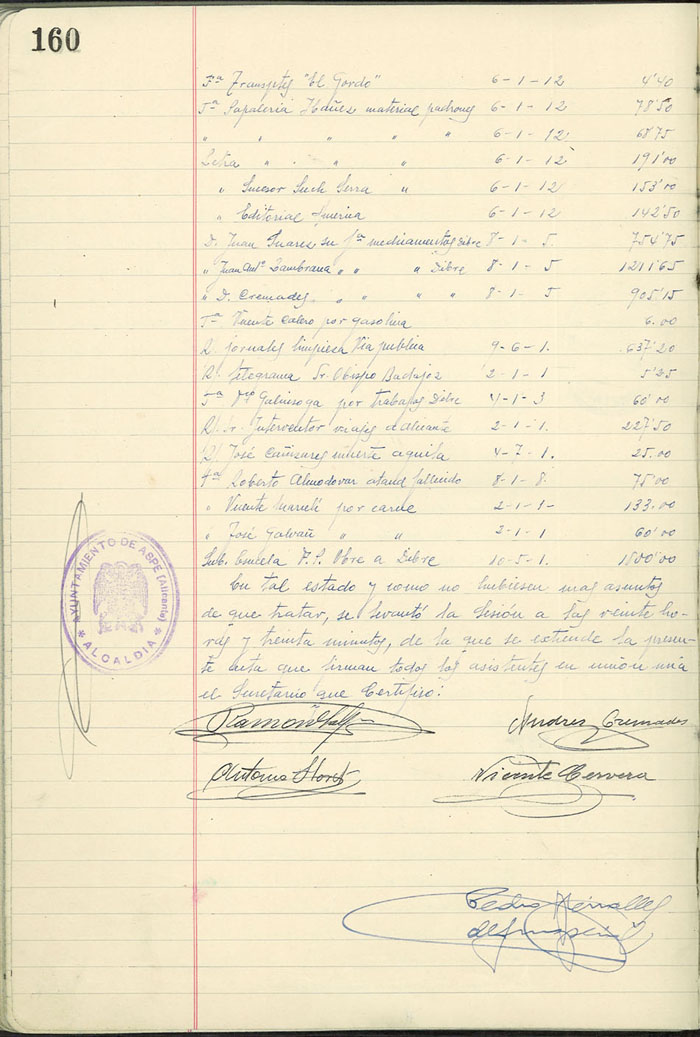 160
Fª Transptes "El Gordo" 6-1-12 4'40
Fª Papaleria Ibañez material padrones 6-1-12 78'50
" " " " " 6-1-12 68'75
Letra " " " " 6-1-12 191'00
" Sucesor Such Serra " 6-1-12 153'00
" Editorial 6-1-12 142'50
D. Juan Suarez su fª medicamentos Dibre 8-1-5. 754'75
" Juan Antº Zambrana " " " Dibre 8-1-5 1211'65
" D. Cremades. " " " " 8-1-5 905'15
Fª Vicente Calero por gasolina 6.00
R/. jornales limpieza Via publica 9-6-1. 637'20
R/. telegrama Sr. Obispo Badajoz 2-1-1 5'35
Fª por trabajos Dibre 4-1-3 60'00
R/. Sr. Interventor viajes a Alicante 2-1-1. 227'50
R/. José Cañizares muerte aguila 4-7-1. 25.00
Fª Roberto Almodovar ataud fallecido 8-1-8. 75'00
" Vicente por carne 2-1-1- 133.00
" José Galvañ " " 2-1-1 60'00
Sub. Escuela F.P. Obre a Dibre 10-5-1. 1800'00
En tal estado y como no hubiesen mas asuntos
de que tratar, se levantó la Sesión a las veinte ho-
ras y treinta minutos, de la que se extiende la presen-
te acta que firman todos los asistentes en unión mia
el Secretario que Certifico:
AYUNTAMIENTO DE ASPE (Alicante)
* ALCALDIA *
Ramón
Andres Cremades
Antonio
Vicente Cervera
Pedro